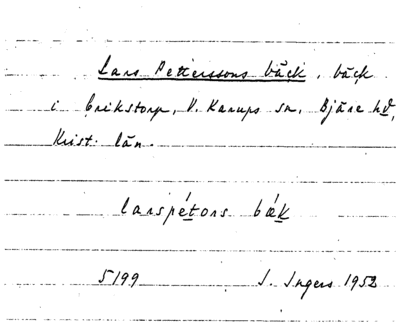 Lars Petterssons bäck, bäck
i Erikstorp, V. Karups sn, Bjäre hd,
Krist. län.
larspétors bæ̀k
5199 I. Ingers 1952